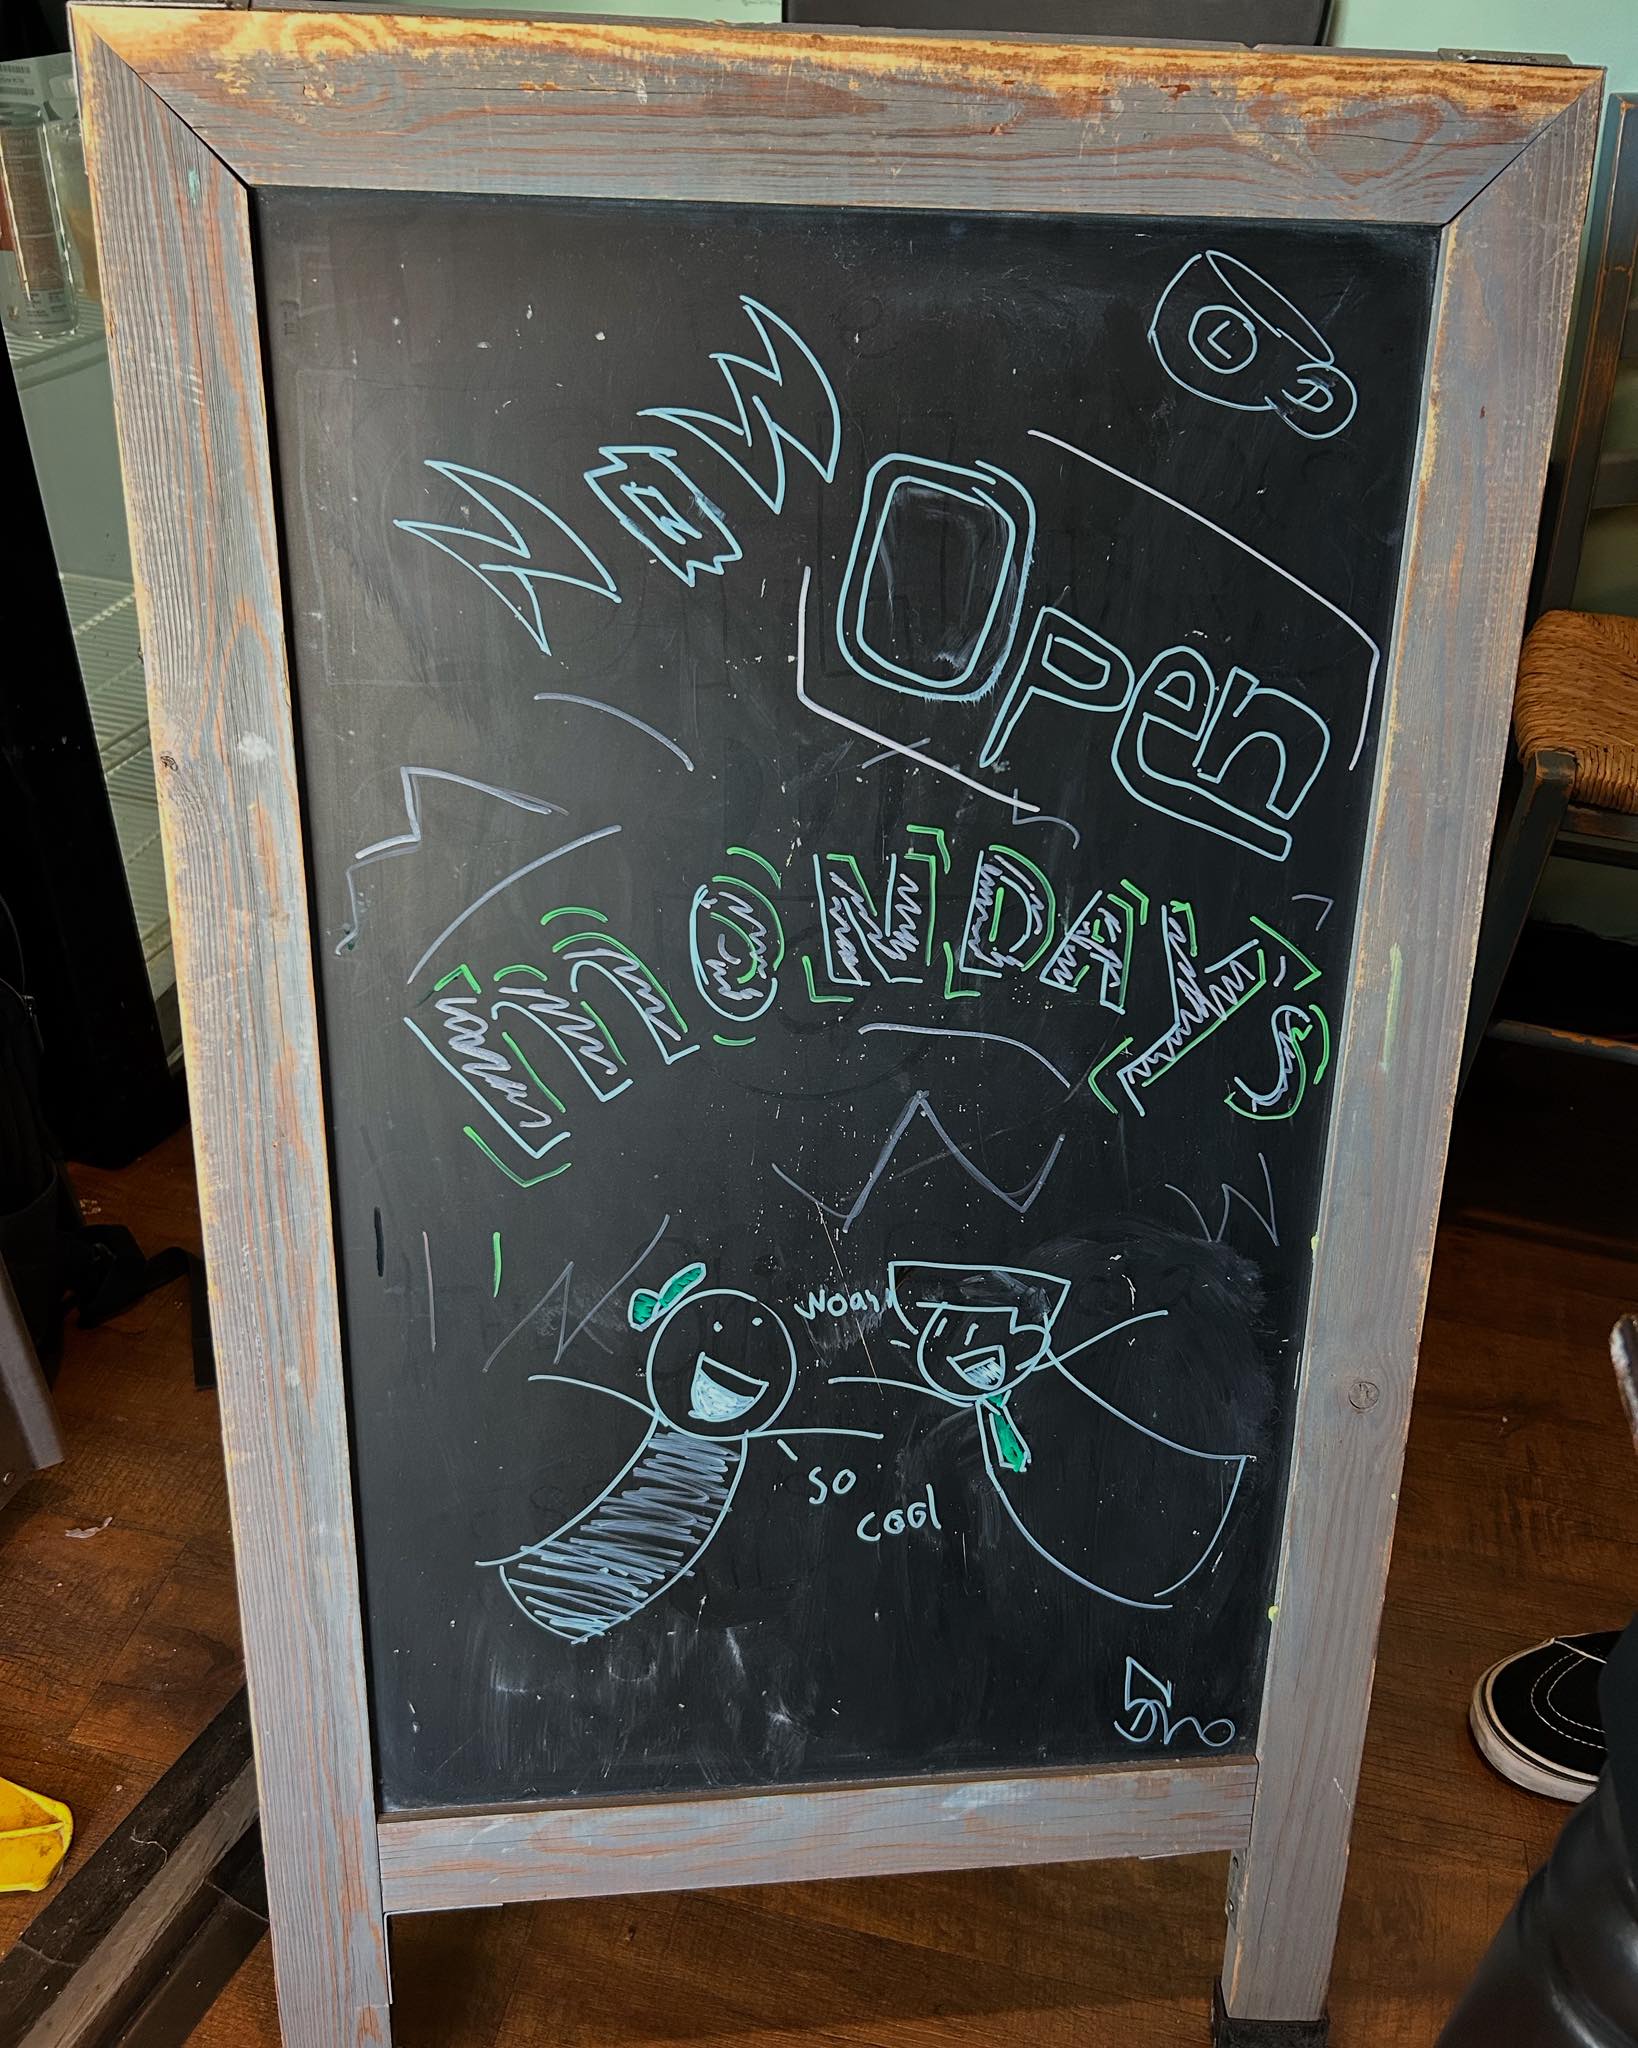 NOW
Open
MONDAYS
Woah
so
cool
L